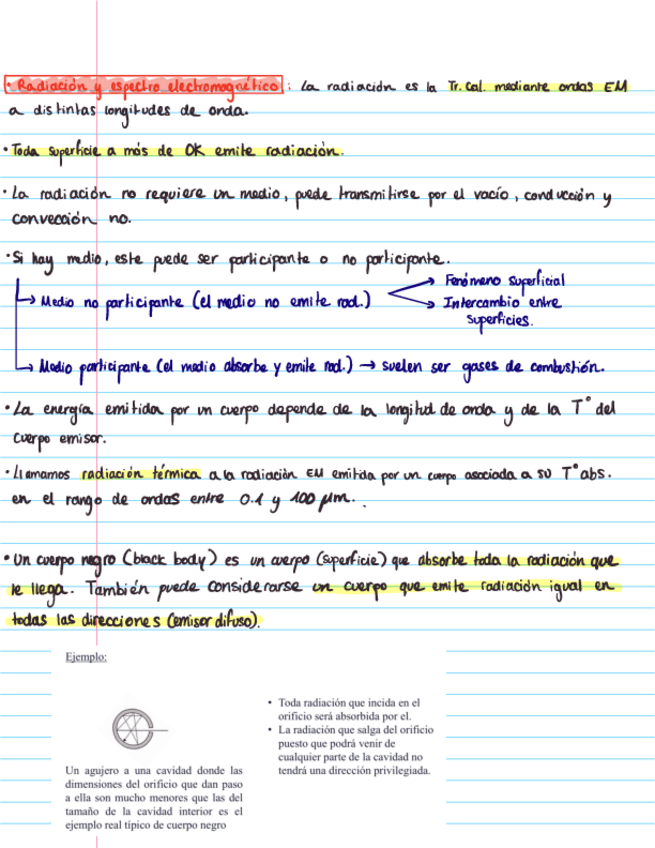 · Radiación y espectro electromagnético : La radiación es la Tr. Cal. mediante ondas EM
a distintas longitudes de onda.
· Toda superficie a más de 0K emite radiación.
· La radiación no requiere un medio, puede transmitirse por el vacío, conducción y
convección no.
· Si hay medio, este puede ser participante o no participante.
→ Medio no participante (el medio no emite rad.)
→ Fenómeno superficial
→ Intercambio entre
superficies.
→ Medio participante (el medio absorbe y emite rad.) → suelen ser gases de combustión.
· La energía emitida por un cuerpo depende de la longitud de onda y de la T° del
cuerpo emisor.
· Llamamos radiación térmica a la radiación EM emitida por un cuerpo asociada a su T° abs.
en el rango de ondas entre 0.1 y 100 μm. .
· Un cuerpo negro (black body) es un cuerpo (superficie) que absorbe toda la radiación que
le llega. También puede considerarse un cuerpo que emite radiación igual en
todas las direcciones (emisor difuso).
Ejemplo:
Un agujero a una cavidad donde las
dimensiones del orificio que dan paso
a ella son mucho menores que las del
tamaño de la cavidad interior es el
ejemplo real típico de cuerpo negro
• Toda radiación que incida en el
orificio será absorbida por el.
• La radiación que salga del orificio
puesto que podrá venir de
cualquier parte de la cavidad no
tendrá una dirección privilegiada.